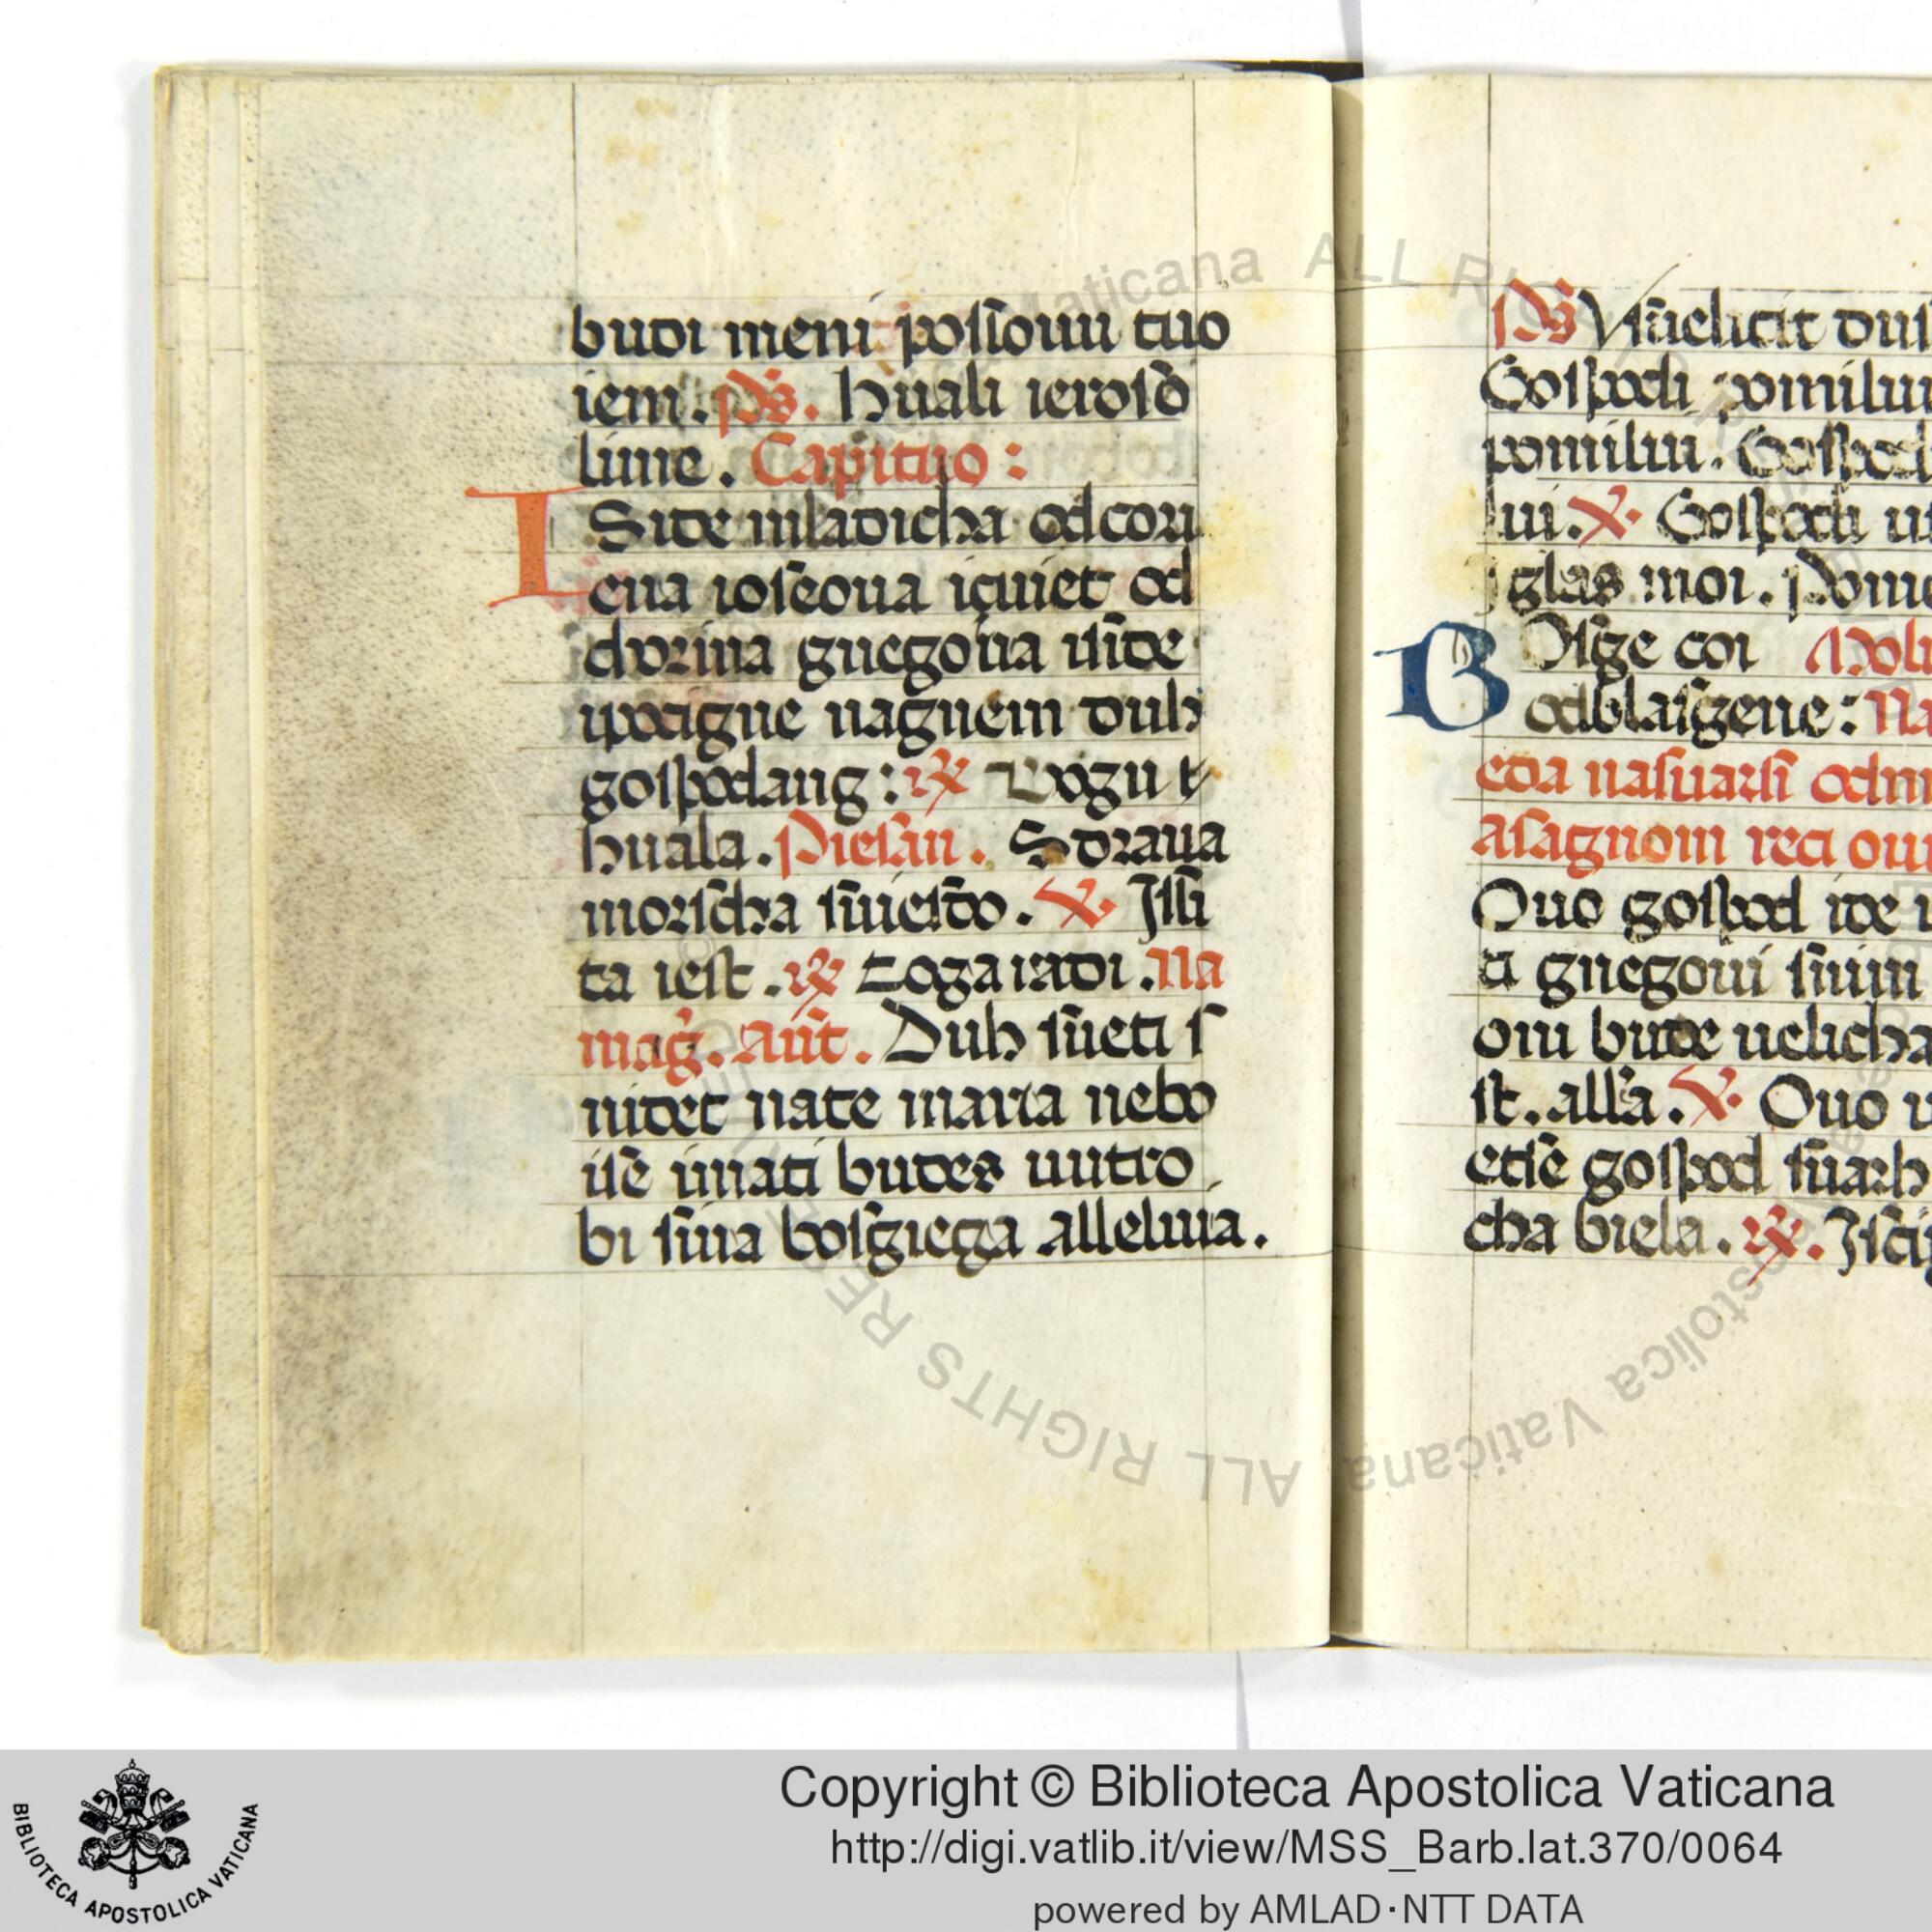 budi meni possouu tuo
iem. ps. huali ierosō
lime. Capituo:
ISide mladicha od cori
ena ioseoua iquiet od
dorina gnegoua uside
ipocigne nagnem duh
gospodang: ℟ Bogu
huala. Piesan. Sdraua
morscha suiesdo. ℣. Issi
ta iest. ℟ Toga radi. Na
mag. ant. Duh sueti s
nidet nate maria nebo
ise imati budes uutro
bi siua bosgiega alleluia.
ps
Gospodi pomilui
pomilui. Gospodi
lui. ℣. Gospodi
glas moi. Pome
BOsge coi Mol
od blasgene: Na
eda nasuarsi odm
asagnom reci
Ouo gospod ide
ti gnegoui suim
oni bude uelicha
st. alla. ℣. Ouo
etise gospod suarh
cha biela. ℟.
Vaticana ALL RIGHTS
ALL RIGHTS RE
Apostolica Vaticana
BIBLIOTECA APOSTOLICA VATICANA
Copyright © Biblioteca Apostolica Vaticana
http://digi.vatlib.it/view/MSS_Barb.lat.370/0064
powered by AMLAD·NTT DATA